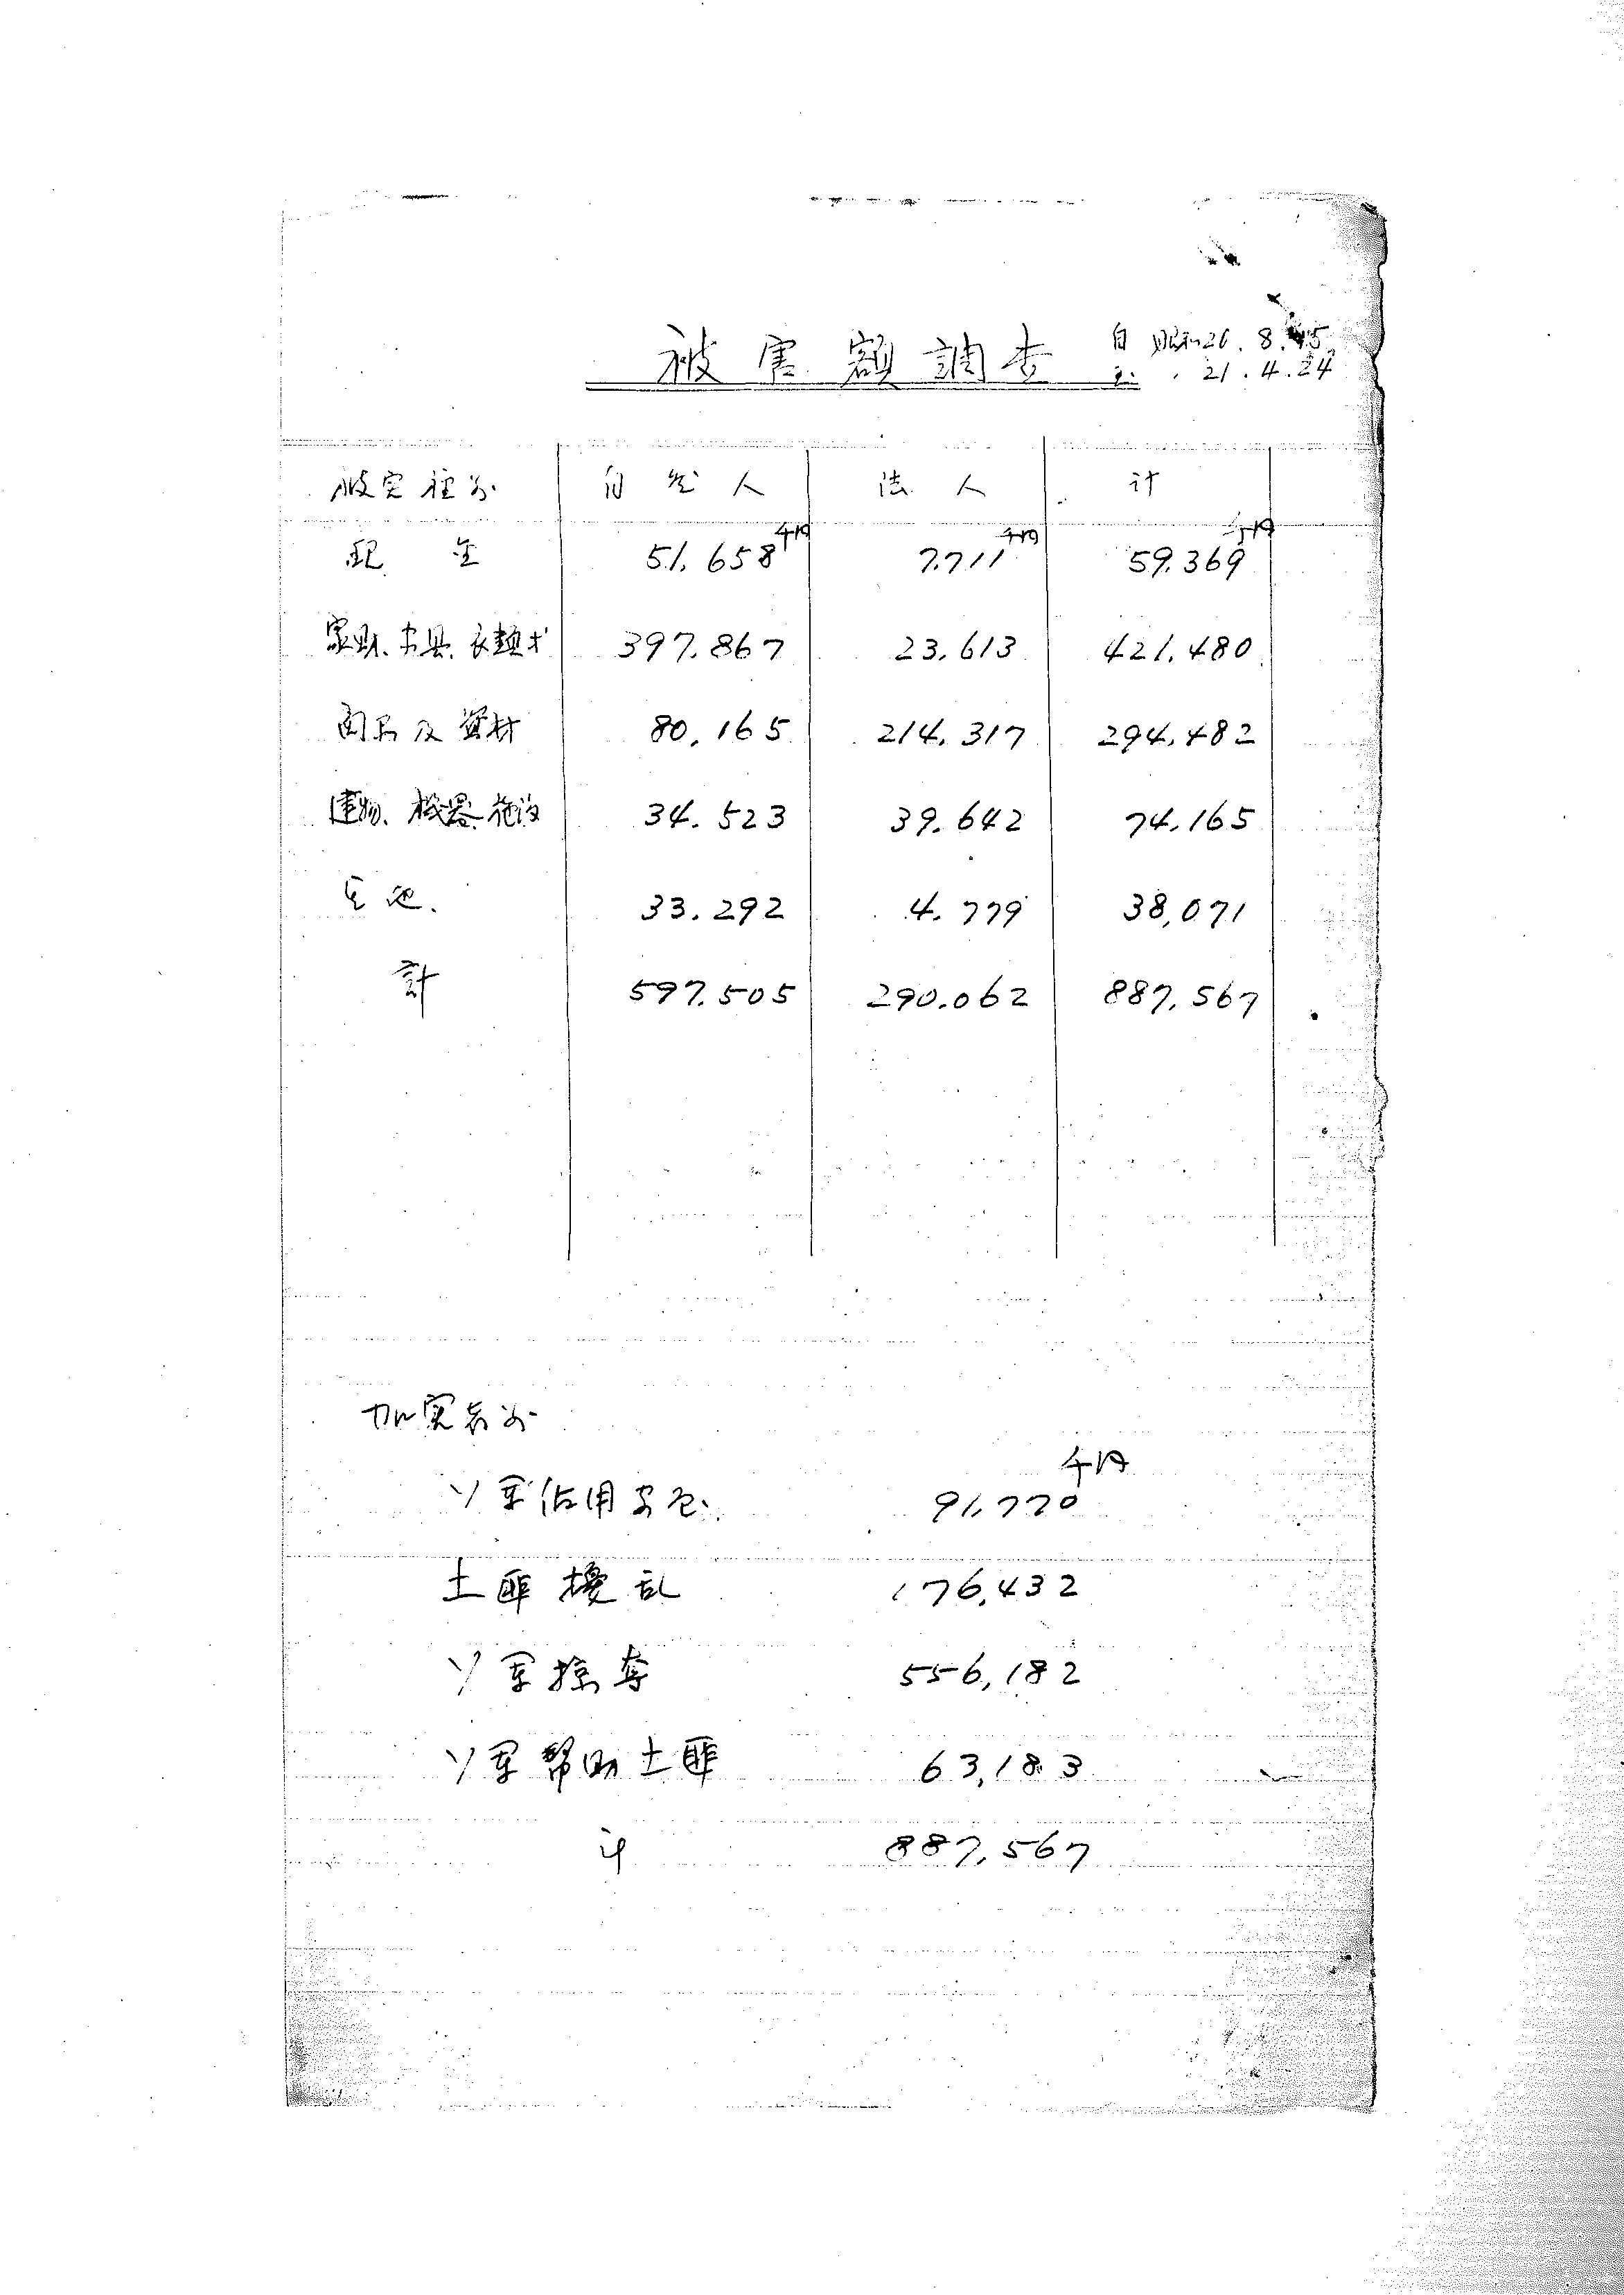 被害額調査 自 昭和20.8.15
至 〃 21.4.24
被害種別 自然人 法人 計
現金 51,658千円 7,711千円 59,369千円
家財、家具、衣類才 397,867 23,613 421,480
商品及資材 80,165 214,317 294,482
建物、機器、施設 34,523 39,642 74,165
其他 33,292 4,779 38,071
計 597,505 290,062 887,567
加害者別
千円
ソ軍占用其他 91,770
土匪擾乱 176,432
ソ軍掠奪 556,182
ソ軍幇助土匪 63,183
計 887,567